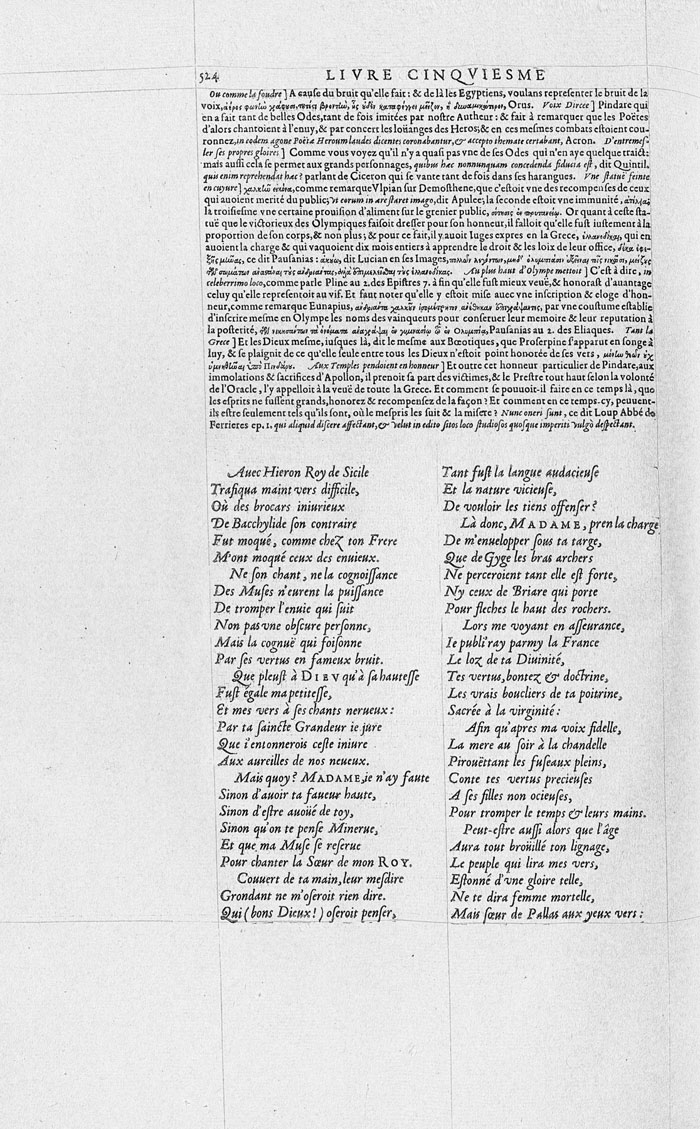 524 LIVRE CINQVIESME
Ou comme la foudre] A cause du bruit qu'elle fait: & de là les Egyptiens, voulans representer le bruit de la
voix, Orus. Voix Dircee] Pindare qui
en a fait tant de belles Odes, tant de fois imitées par nostre Autheur: & fait à remarquer que les Poëtes
d'alors chantoient à l'enuy, & par concert les loüanges des Heros; & en ces mesmes combats estoient cou-
ronnez, in eodem agone Poëtæ Heroum laudes dicentes coronabantur, & accepto themate certabant, Acron. D'entremes-
ler ses propres gloires] Comme vous voyez qu'il n'y a quasi pas vne de ses Odes qui n'en aye quelque traict:
mais aussi cela se permet aux grands personnages, quibus hæc nonnunquam concedenda fiducia est, dit Quintil.
quis enim reprehendat hac? parlant de Ciceron qui se vante tant de fois dans ses harangues. Vne statuë feinte
en cuyure] comme remarque Vlpian sur Demosthene, que c'estoit vne des recompenses de ceux
qui auoient merité du public, vt eorum in ære staret imago, dit Apulee; la seconde estoit vne immunité,
la troisiesme vne certaine prouision d'aliment sur le grenier public, Or quant à ceste sta-
tuë que le victorieux des Olympiques faisoit dresser pour son honneur, il falloit qu'elle fust iustement à la
proportion de son corps, & non plus; & pour ce fait, il y auoit Iuges expres en la Grece, qui en
auoient la charge & qui vaquoient dix mois entiers à apprendre le droit & les loix de leur office,
ce dit Pausanias: dit Lucian en ses Images,
Au plus haut d'Olympe mettoit] C'est à dire, in
celeberrimo loco, comme parle Pline au 2. des Epistres 7. à fin qu'elle fust mieux veuë, & honorast d'auantage
celuy qu'elle representoit au vif. Et faut noter qu'elle y estoit mise auec vne inscription & eloge d'hon-
neur, comme remarque Eunapius, par vne coustume establie
d'inscrire mesme en Olympe les noms des vainqueurs pour conseruer leur memoire & leur reputation à
la posterité, Pausanias au 2. des Eliaques. Tant la
Grece] Et les Dieux mesme, iusques là, dit le mesme aux Bœotiques, que Proserpine s'apparut en songe à
luy, & se plaignit de ce qu'elle seule entre tous les Dieux n'estoit point honorée de ses vers,
Aux Temples pendoient en honneur] Et outre cet honneur particulier de Pindare, aux
immolations & sacrifices d'Apollon, il prenoit sa part des victimes, & le Prestre tout haut selon la volonté
de l'Oracle, l'y appelloit à la veuë de toute la Grece. Et comment se pouuoit-il faire en ce temps là, que
les esprits ne fussent grands, honorez & recompensez de la façon? Et comment en ce temps-cy, peuuent-
ils estre seulement tels qu'ils sont, où le mespris les suit & la misere? Nunc oneri sunt, ce dit Loup Abbé de
Ferrieres ep. 1. qui aliquid discere affectant, & velut in edito sitos loco studiosos quosque imperiti vulgò despectant.
Auec Hieron Roy de Sicile
Trafiqua maint vers difficile,
Où des brocars iniurieux
De Bacchylide son contraire
Fut moqué, comme chez ton Frere
M'ont moqué ceux des enuieux.
Ne son chant, ne la cognoissance
Des Muses n'eurent la puissance
De tromper l'enuie qui suit
Non pas vne obscure personne,
Mais la cognuë qui foisonne
Par ses vertus en fameux bruit.
Que pleust à DIEV qu'à sa hautesse
Fust égale ma petitesse,
Et mes vers à ses chants nerueux:
Par ta saincte Grandeur ie iure
Que i'entonnerois ceste iniure
Aux aureilles de nos neueux.
Mais quoy? MADAME, ie n'ay faute
Sinon d'auoir ta faueur haute,
Sinon d'estre auoüé de toy,
Sinon qu'on te pense Minerue,
Et que ma Muse se reserue
Pour chanter la Sœur de mon ROY.
Couuert de ta main, leur mesdire
Grondant ne m'oseroit rien dire.
Qui (bons Dieux!) oseroit penser,
Tant fust la langue audacieuse
Et la nature vicieuse,
De vouloir les tiens offenser?
Là donc, MADAME, pren la charge
De m'enuelopper sous ta targe,
Que de Gyge les bras archers
Ne perceroient tant elle est forte,
Ny ceux de Briare qui porte
Pour fleches le haut des rochers.
Lors me voyant en asseurance,
Ie publi'ray parmy la France
Le loz de ta Diuinité,
Tes vertus, bontez & doctrine,
Les vrais boucliers de ta poitrine,
Sacrée à la virginité:
Afin qu'apres ma voix fidelle,
La mere au soir à la chandelle
Pirouëttant les fuseaux pleins,
Conte tes vertus precieuses
A ses filles non ocieuses,
Pour tromper le temps & leurs mains.
Peut-estre aussi alors que l'âge
Aura tout broüillé ton lignage,
Le peuple qui lira mes vers,
Estonné d'vne gloire telle,
Ne te dira femme mortelle,
Mais sœur de Pallas aux yeux vers: